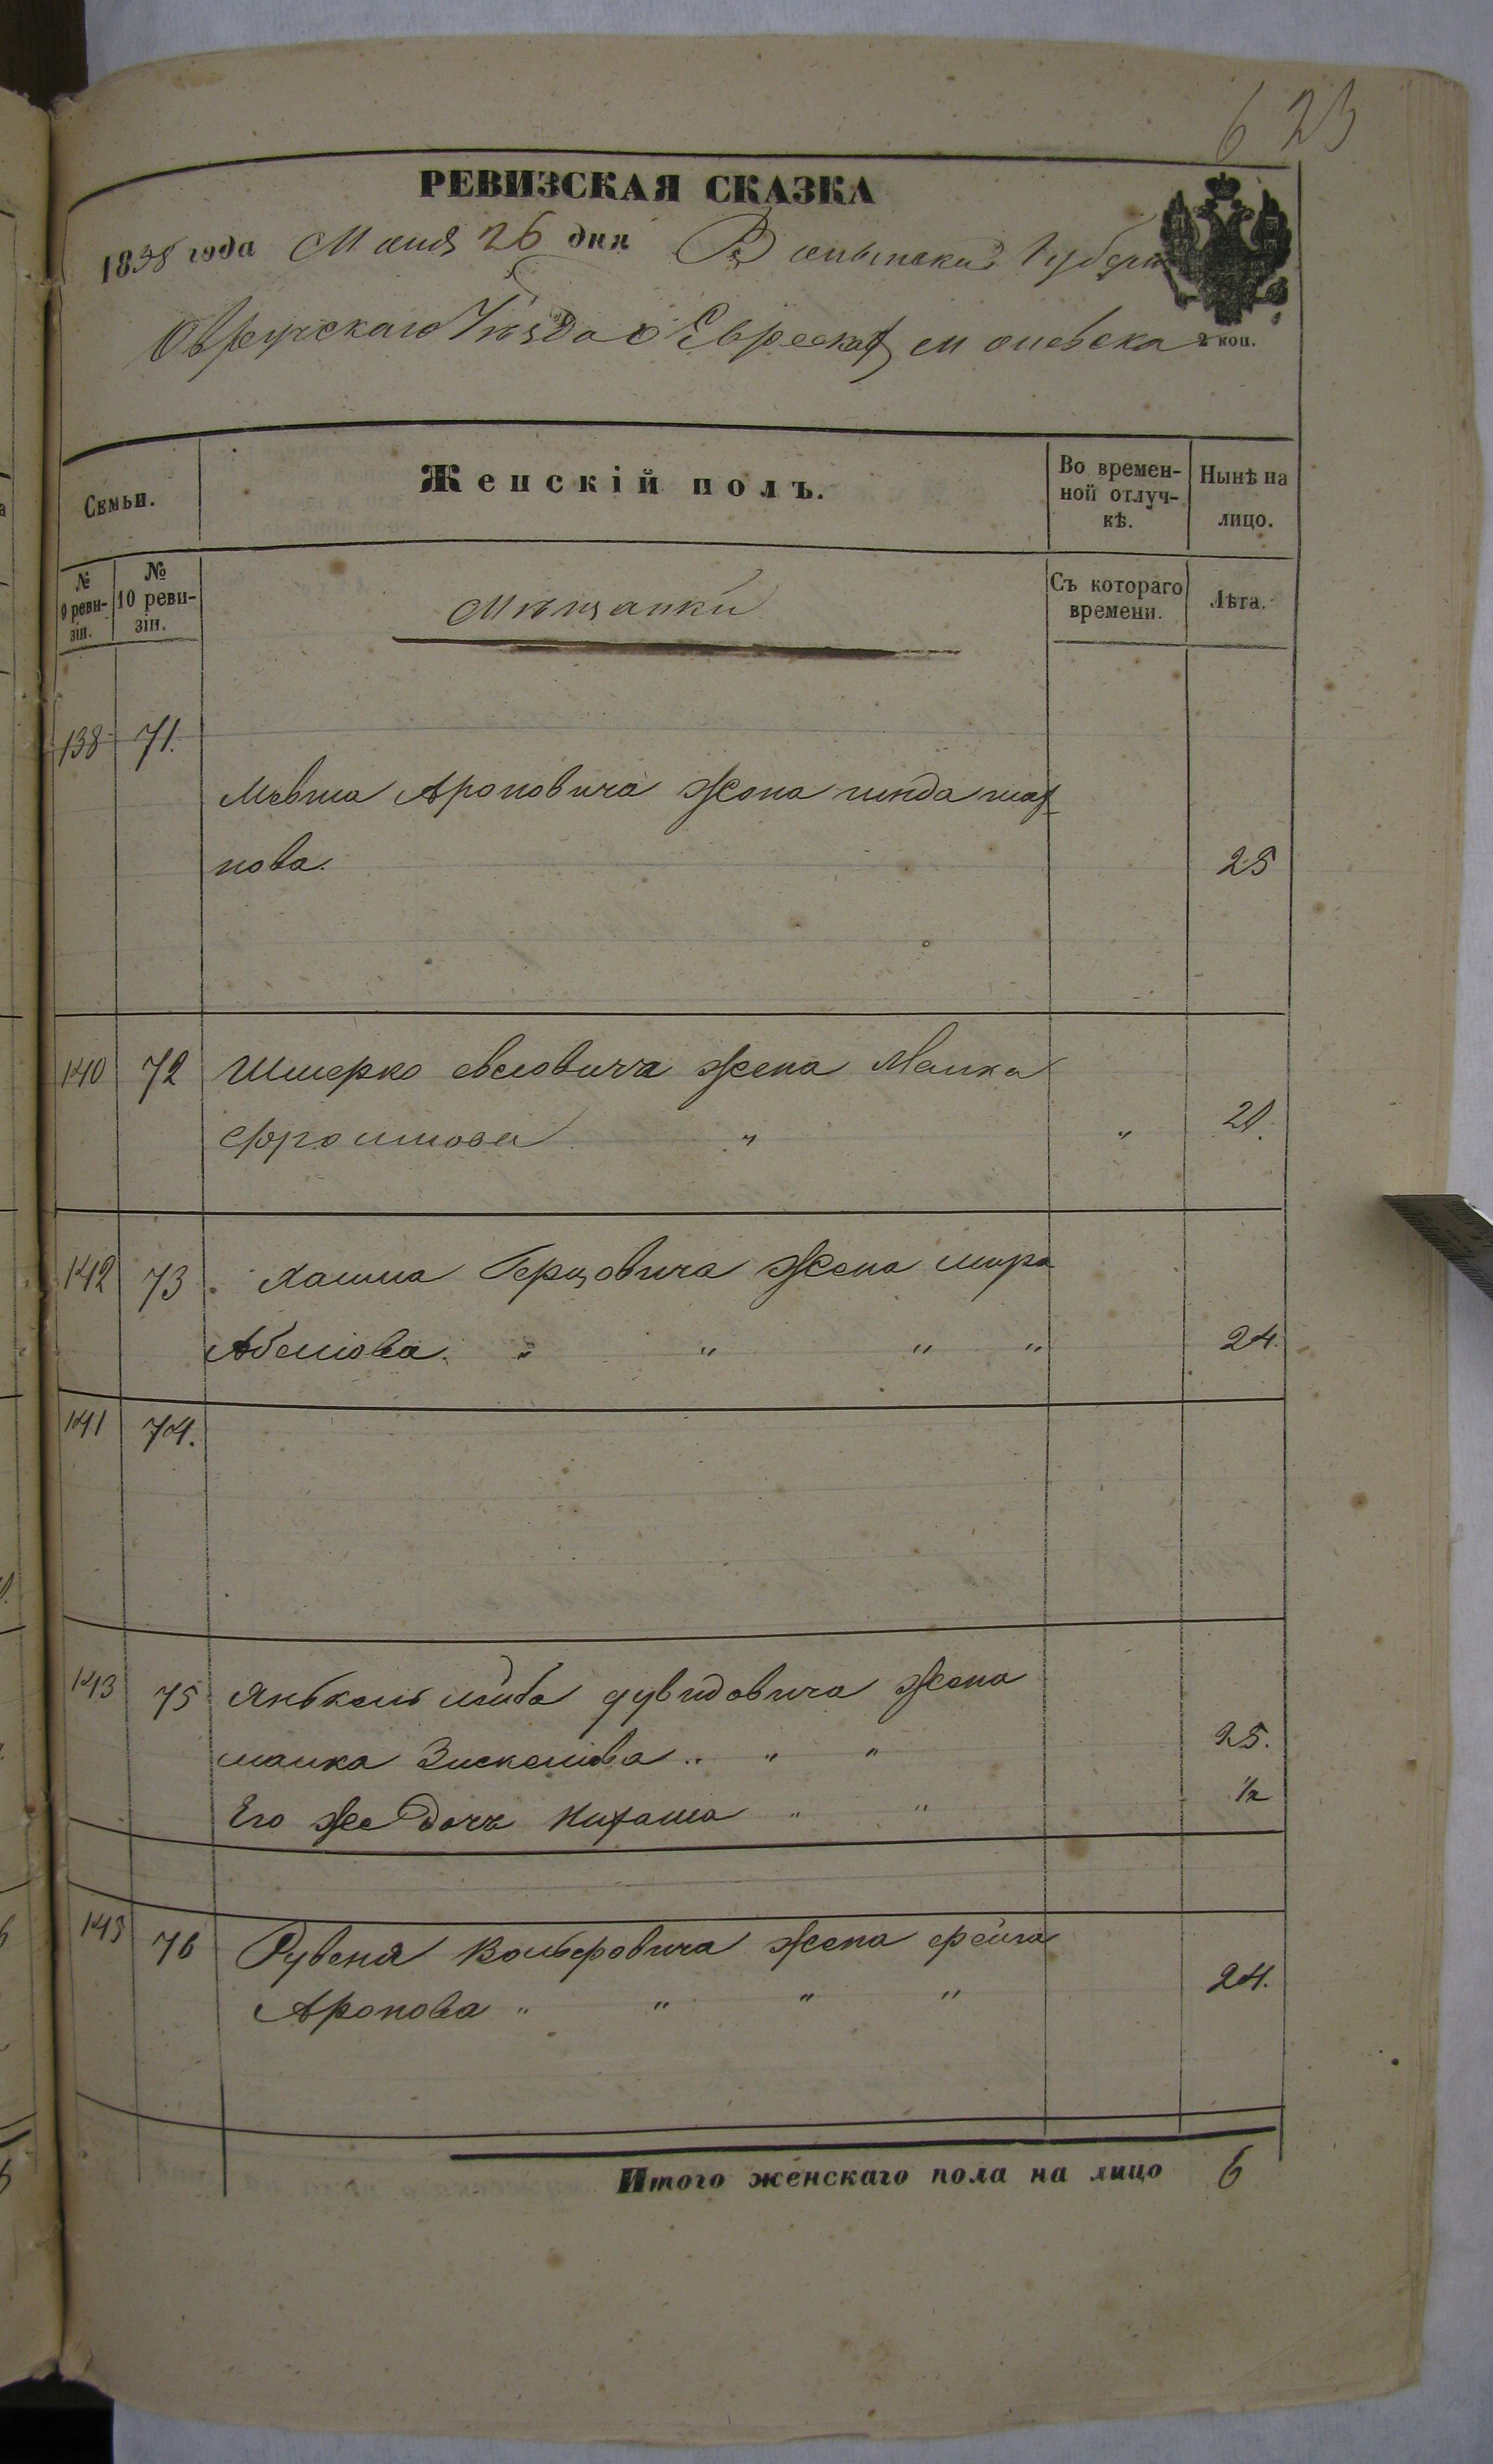 623
РЕВИЗСКАЯ СКАЗКА
1858 года Маия 26 дня Волынской Губерн
Овручскаго Уезда о Евреях м Олевска
2 коп.
Семьи.
Женскій полъ.
Во времен-
ной отлуч-
кѣ.
Нынѣ на
лицо.
№
9 реви-
зіи.
№
10 реви-
зіи.
Мѣщанки
Съ котораго
времени.
Лѣта.
138 71.
Ароновича жена
нова. 25
140 72 Шмерко жена Малка
Фроимова " "
142 73 Герцовича жена Мира
Абелиова. " " " " 24.
141 74.
143 75 Янькель лейба дувидовича жена
малка Зискелиова " " " 25.
Его же дочь " " 1/2
76 Рувена Вольфовича жена фейга
Аронова " " " " 24.
Итого женскаго пола на лицо 6